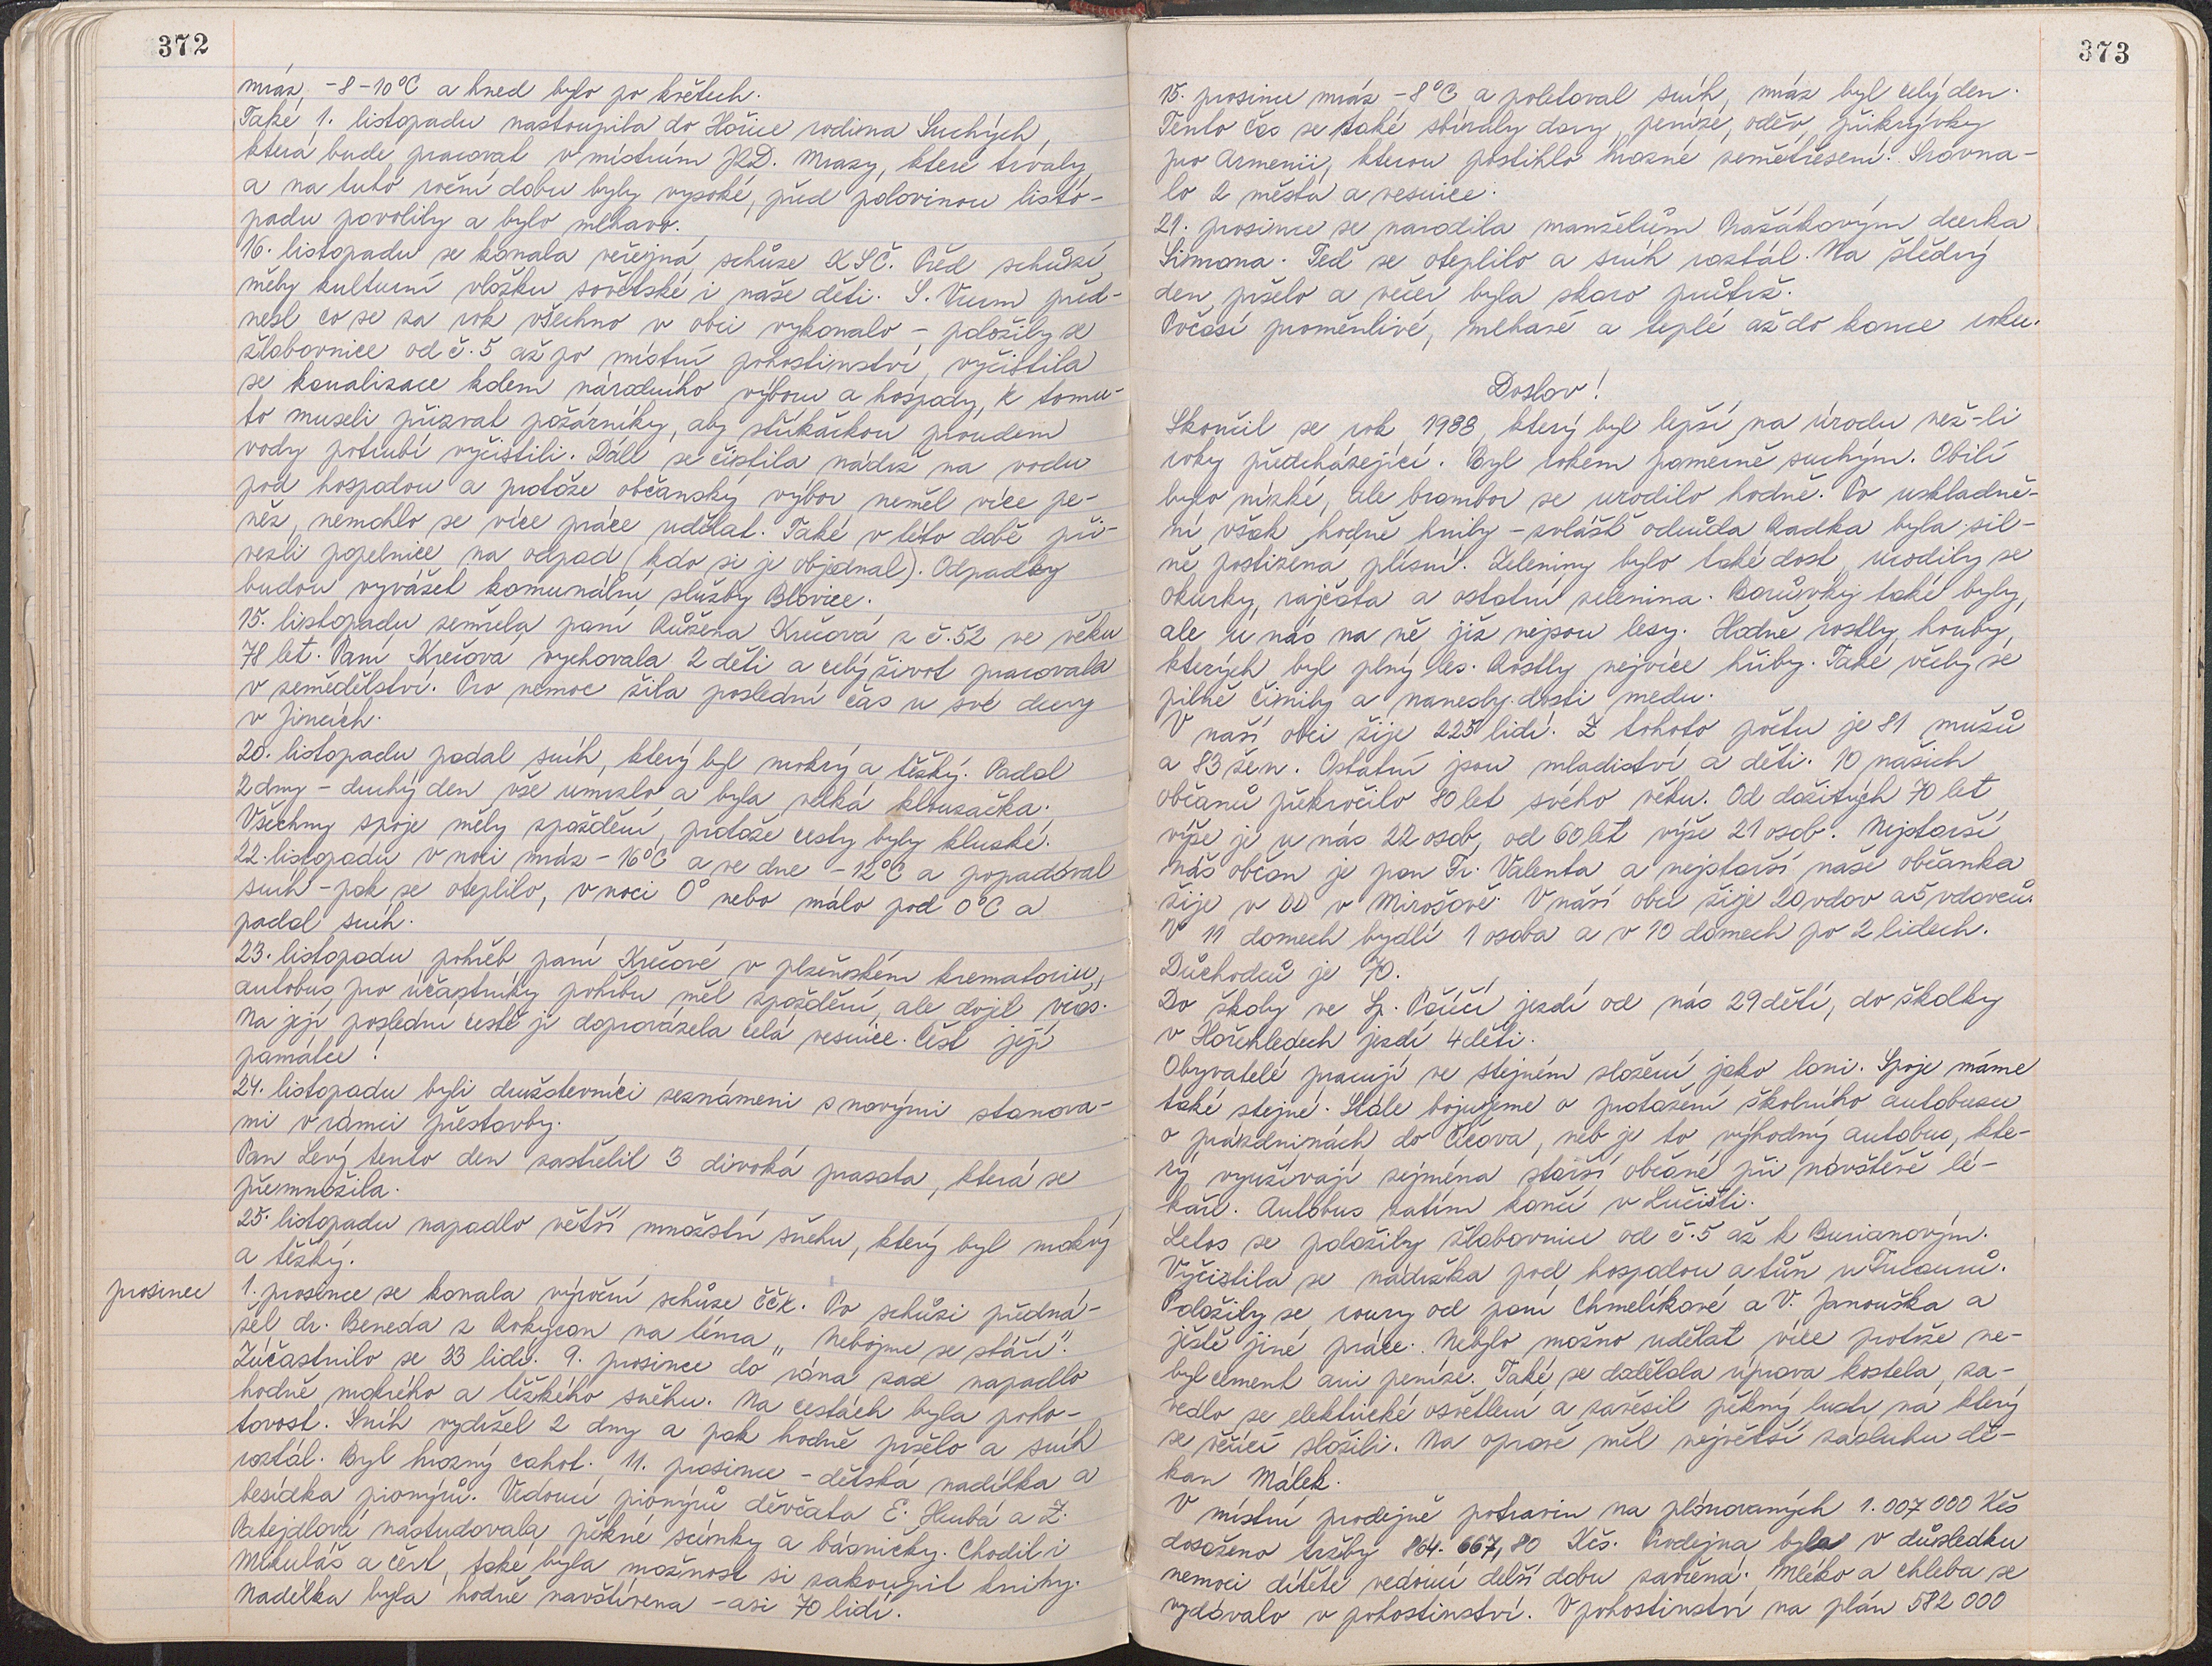 372
mráz -8-10°C a hned bylo po květech.
Také 1. listopadu nastoupila do Hořice rodina Suchých,
která bude pracovat v místním JZD. Mrazy, které trvaly
a na tuto roční dobu byly vysoké, před polovinou listo-
padu povolily a bylo mlhavo.
16. listopadu se konala veřejná schůze KSČ. Před schůzí
měly kulturní vložku sovětské i naše děti. S. Vurm před-
nesl co se za rok všechno v obci vykonalo - položily se
žlabovnice od č. 5 až po místní pohostinství, vyčistila
se kanalizace kolem národního výboru a hospody, k tomu-
to museli přizvat požárníky, aby stříkačkou proudem
vody potrubí vyčistili. Dále se čistila nádrž na vodu
pod hospodou a protože občanský výbor neměl více pe-
něz, nemohlo se více práce udělat. Také v této době při-
vezli popelnice na odpad (kdo si je objednal). Odpadky
budou vyvážet komunální služby Blovice.
15. listopadu zemřela paní Růžena Krečová z č. 52 ve věku
78 let. Paní Krečová vychovala 2 děti a celý život pracovala
v zemědělství. Pro nemoc žila poslední čas u své dcery
v Jincích.
20. listopadu padal sníh, který byl mokrý a těžký. Padal
2 dny - druhý den vše umrzlo a byla velká klouzačka.
Všechny spoje měly zpoždění, protože cesty byly kluzké.
22. listopadu v noci mráz -16°C a ve dne -12°C a popadával
sníh - pak se oteplilo, v noci 0° nebo málo pod 0°C a
padal sníh.
23. listopadu pohřeb paní Krečové v plzeňském krematoriu,
autobus pro účastníky pohřbu měl zpoždění, ale dojel včas.
Na její poslední cestě ji doprovázela celá vesnice. Čest její
památce!
24. listopadu byli družstevníci seznámeni s novými stanova-
mi v rámci přestavby.
Pan Levý tento den zastřelil 3 divoká prasata, která se
přemnožila.
25. listopadu napadlo větší množství sněhu, který byl mokrý
a těžký.
prosinec 1. prosince se konala výroční schůze ČČK. Po schůzi předná-
šel dr. Beneda z Rokycan na téma „Nebojme se stáří".
Zúčastnilo se 33 lidí. 9. prosince do rána zase napadlo
hodně mokrého a těžkého sněhu. Na cestách byla poho-
tovost. Sníh vydržel 2 dny a pak hodně pršelo a sníh
roztál. Byl hrozný cahot. 11. prosince - dětská nadílka a
besídka pionýrů. Vedoucí pionýrů děvčata E. Hrubá a Z.
Patejdlová nastudovala pěkné scénky a básničky. Chodil i
Mikuláš a čert, také byla možnost si zakoupit knihy.
Nadílka byla hodně navštívena - asi 70 lidí.
373
15. prosince mráz -8°C a poletoval sníh, mráz byl celý den.
Tento čas se také sbíraly dary, peníze, oděv, přikrývky
pro Armenii, kterou postihlo hrozné zemětřesení. Srovna-
lo 2 města a vesnice.
21. prosince se narodila manželům Pražákovým dcerka
Simona. Teď se oteplilo a sníh roztál. Na štědrý
den pršelo a večer byla skoro průtrž.
Počasí proměnlivé, mlhavé a teplé až do konce roku.
Doslov!
Skončil se rok 1988, který byl lepší na úrodu než-li
roky předcházející. Byl rokem poměrně suchým. Obilí
bylo nízké, ale brambor se urodilo hodně. Po uskladně-
ní však hodně hnily - zvláště odrůda Radka byla sil-
ně postižena plísní. Zeleniny bylo také dost, urodily se
okurky, rajčata a ostatní zelenina. Borůvky také byly,
ale u nás na ně již nejsou lesy. Hodně rostly houby,
kterých byl plný les. Rostly nejvíce hřiby. Také včely se
pilně činily a nanesly dosti medu.
V naší obci žije 225 lidí. Z tohoto počtu je 81 mužů
a 83 žen. Ostatní jsou mladiství a děti. 10 našich
občanů překročilo 80 let svého věku. Od dožitých 70 let
výše je u nás 22 osob, od 60 let výše 21 osob. Nejstarší
náš občan je pan Fr. Valenta a nejstarší naše občanka
žije v DD v Mirošově. V naší obci žije 20 vdov a 5 vdovců.
V 11 domech bydlí 1 osoba a v 10 domech po 2 lidech.
Důchodců je 70.
Do školy ve Sp. Poříčí jezdí od nás 29 dětí, do školky
v Hořehledech jezdí 4 děti.
Obyvatelé pracují ve stejném složení jako loni. Spoje máme
také stejné. Stále bojujeme o protažení školního autobusu
o prázdninách do Čížova, neb je to výhodný autobus, kte-
rý využívají zejména starší občané při návštěvě lé-
kaře. Autobus zatím končí v Lučišti.
Letos se položily žlabovnice od č. 5 až k Burianovým.
Vyčistila se nádržka pod hospodou a tůň u Trčanů.
Položily se roury od paní Chmelíkové a V. Janouška a
ještě jiné práce. Nebylo možno udělat více protože ne-
byl cement ani peníze. Také se dodělala úprava kostela, za-
vedlo se elektrické osvětlení a zavěsil pěkný lustr, na který
se věřící složili. Na opravě měl největší zásluhu dě-
kan Málek.
V místní prodejně potravin na plánovaných 1.007 000 Kčs
dosaženo tržby 864. 667,80 Kčs. Prodejna byla v důsledku
nemoci dítěte vedoucí delší dobu zavřená. Mléko a chleba se
vydávalo v pohostinství. V pohostinství na plán 582 000